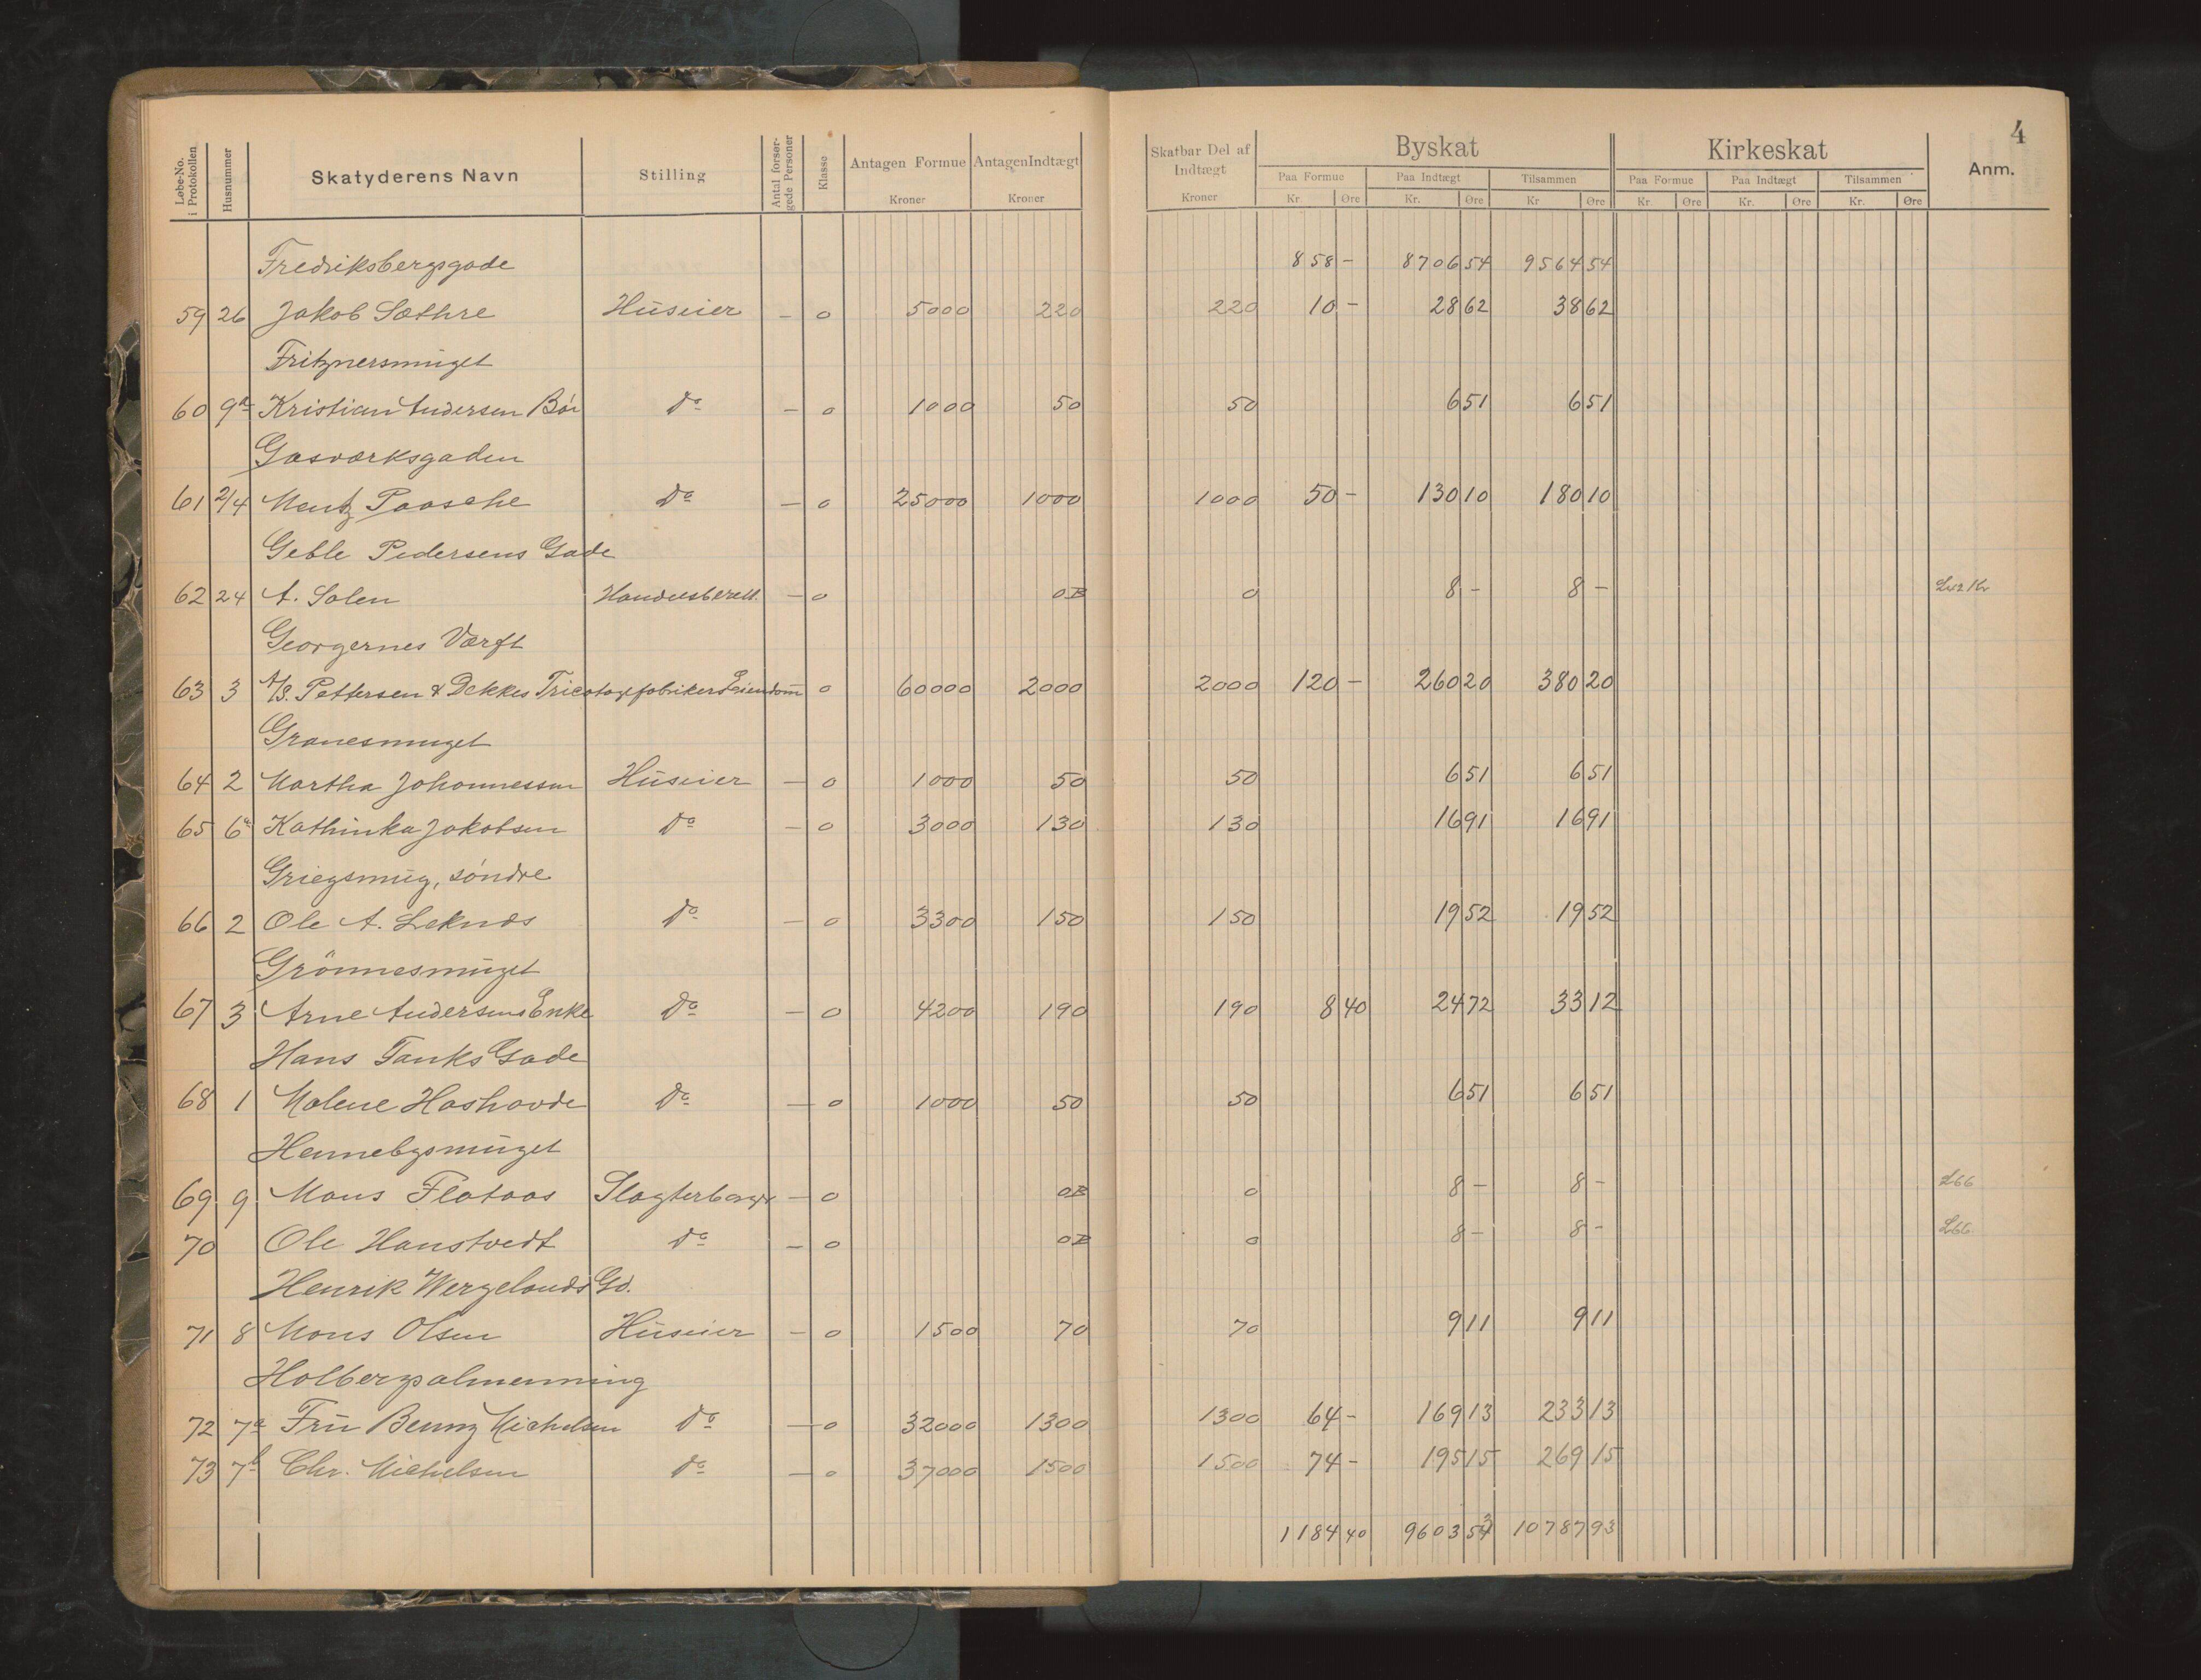 4
Løbe-No. i Protokollen Husnummer Skatyderens Navn Stilling Antal forsørgede Personer Klasse Antagen Formue Kroner Antagen Indtægt Kroner Skatbar Del af Indtægt Kroner Byskat Kirkeskat Anm.
Paa Formue Paa Indtægt Tilsammen Paa Formue Paa Indtægt Tilsammen
Kr. Øre Kr. Øre Kr Øre Kr. Øre Kr. Øre Kr. Øre
Fredriksbergsgade 858 - 8706 54 9564 54
59 26 Jakob Sæthre Huseier - 0 5000 220 220 10 - 28 62 38 62
Fritznersmuget
60 9a Kristian Andersen Bør do - 0 1000 50 50 6 51 6 51
Gasværksgaden
61 2/4 Mentz Paasche do - 0 25000 1000 1000 50 - 130 10 180 10
Geble Pedersens Gade
62 24 A. Solen - 0 0B 0 8 - 8 -
Georgernes Værft
63 3 A/S. Pettersen & Dekkes Tricotagefabrikers Eiendom 0 60000 2000 2000 120 - 260 20 380 20
Granesmuget
64 2 Martha Johannessen Huseier - 0 1000 50 50 6 51 6 51
65 6a Kathinka Jakobsen do - 0 3000 130 130 16 91 16 91
Griegsmug, søndre
66 2 Ole A. Leknes do - 0 3300 150 150 19 52 19 52
Grønnesmuget
67 3 Arne Andersens Enke do - 0 4200 190 190 8 40 24 72 33 12
Hans Tanks Gade
68 1 Malene Hoshovde do - 0 1000 50 50 6 51 6 51
Hennebysmuget
69 9 Mons Flataas - 0 0B 0 8 - 8 - L66
70 Ole Hanstvedt do - 0 0B 0 8 - 8 - L66
Henrik Wergelands Gd.
71 8 Mons Olsen Huseier - 0 1500 70 70 9 11 9 11
Holbergsalmenning
72 7a Fru Benny Michelsen do - 0 32000 1300 1300 64 - 169 13 233 13
73 7b Chr. Michelsen do - 0 37000 1500 1500 74 - 195 15 269 15
1184 40 9603 53 10787 93